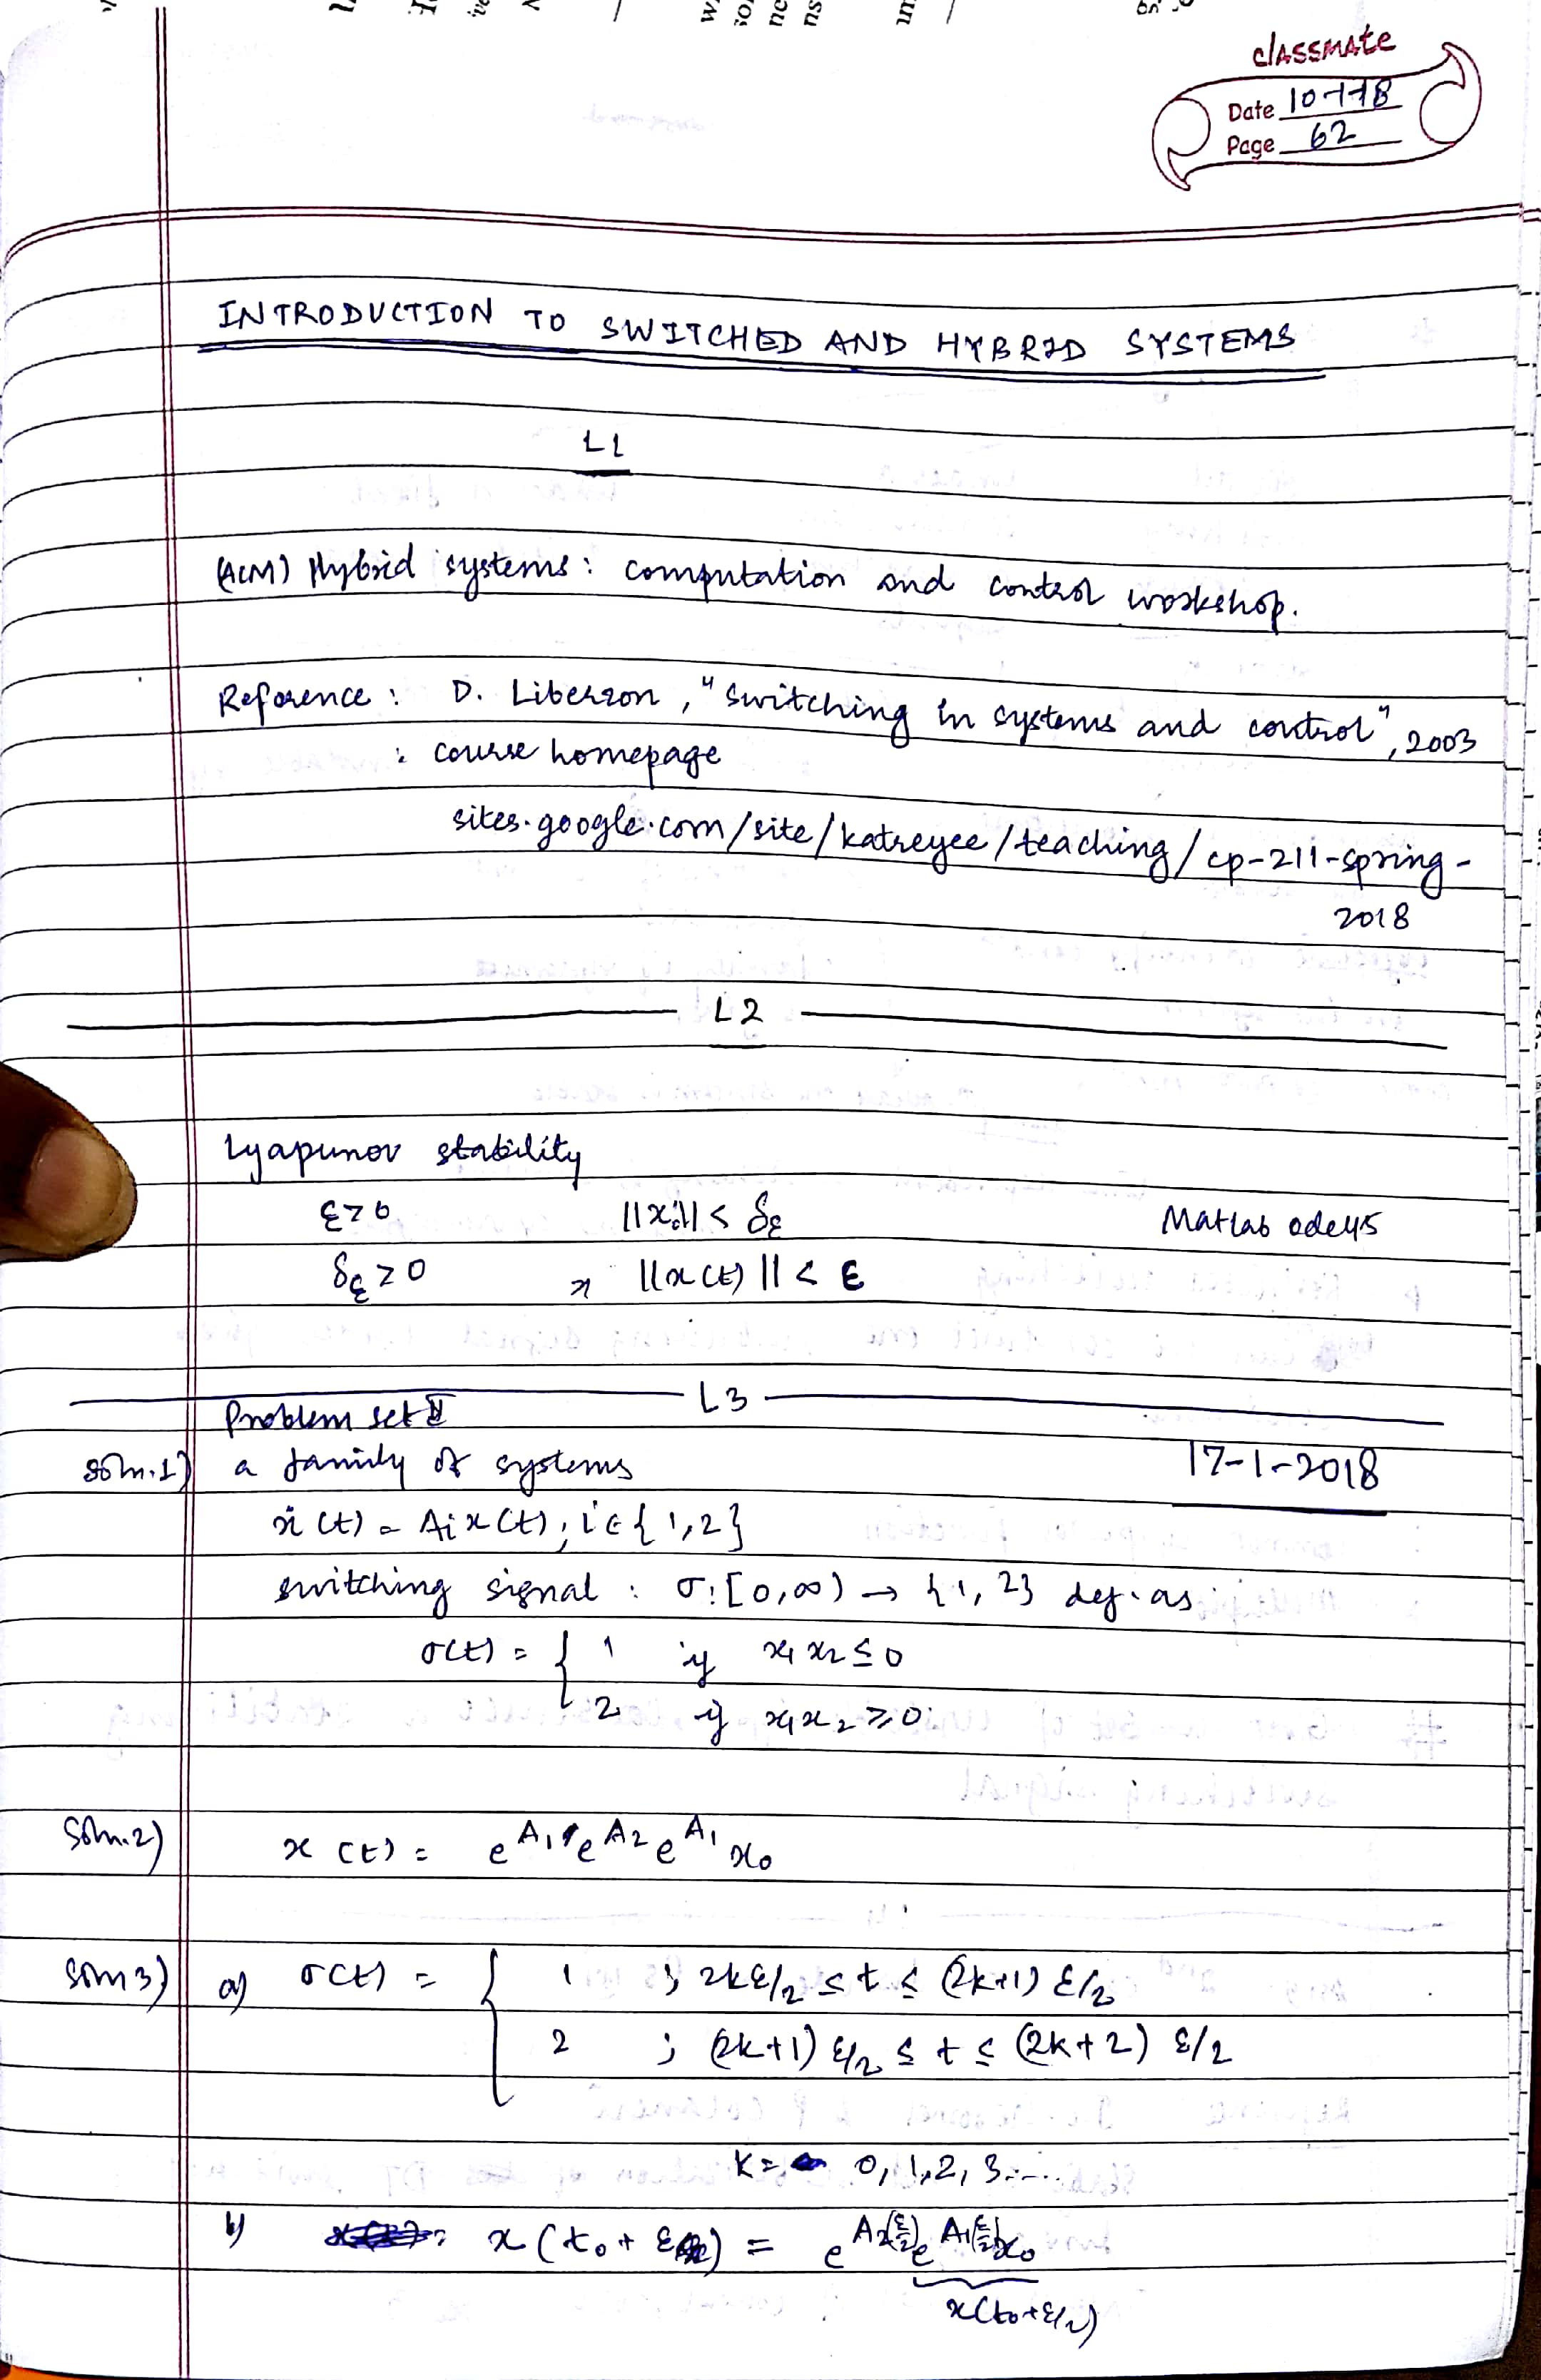 classmate
Date 10-1-18
Page 62
INTRODUCTION TO SWITCHED AND HYBRID SYSTEMS
L1
(ACM) Hybrid systems: computation and control workshop.
Reference : D. Liberzon, "Switching in systems and control", 2003
: course homepage
sites.google.com/site/katreyee/teaching/cp-211-spring-
2018
L2
Lyapunov stability
ε>0 ||x0|| < δε Matlab ode45
δε>0 ||x(t)|| < ε
L3
Problem set
soln.1) a family of systems 17-1-2018
ẋ(t) = Ai x(t), i ∈ {1,2}
switching signal : σ: [0,∞) → {1,2} def. as
σ(t) = { 1 if x1 x2 ≤ 0
2 if x1 x2 ≥ 0
Soln.2) x(t) = e^A1 e^A2 e^A1 x0
Soln 3) a) σ(t) = { 1 ; 2kε/2 ≤ t ≤ (2k+1) ε/2
2 ; (2k+1) ε/2 ≤ t ≤ (2k+2) ε/2
k = 0, 1, 2, 3.....
b) x(t0 + ε) = e^A2(ε/2) e^A1(ε/2) x0
x(t0+ε/2)